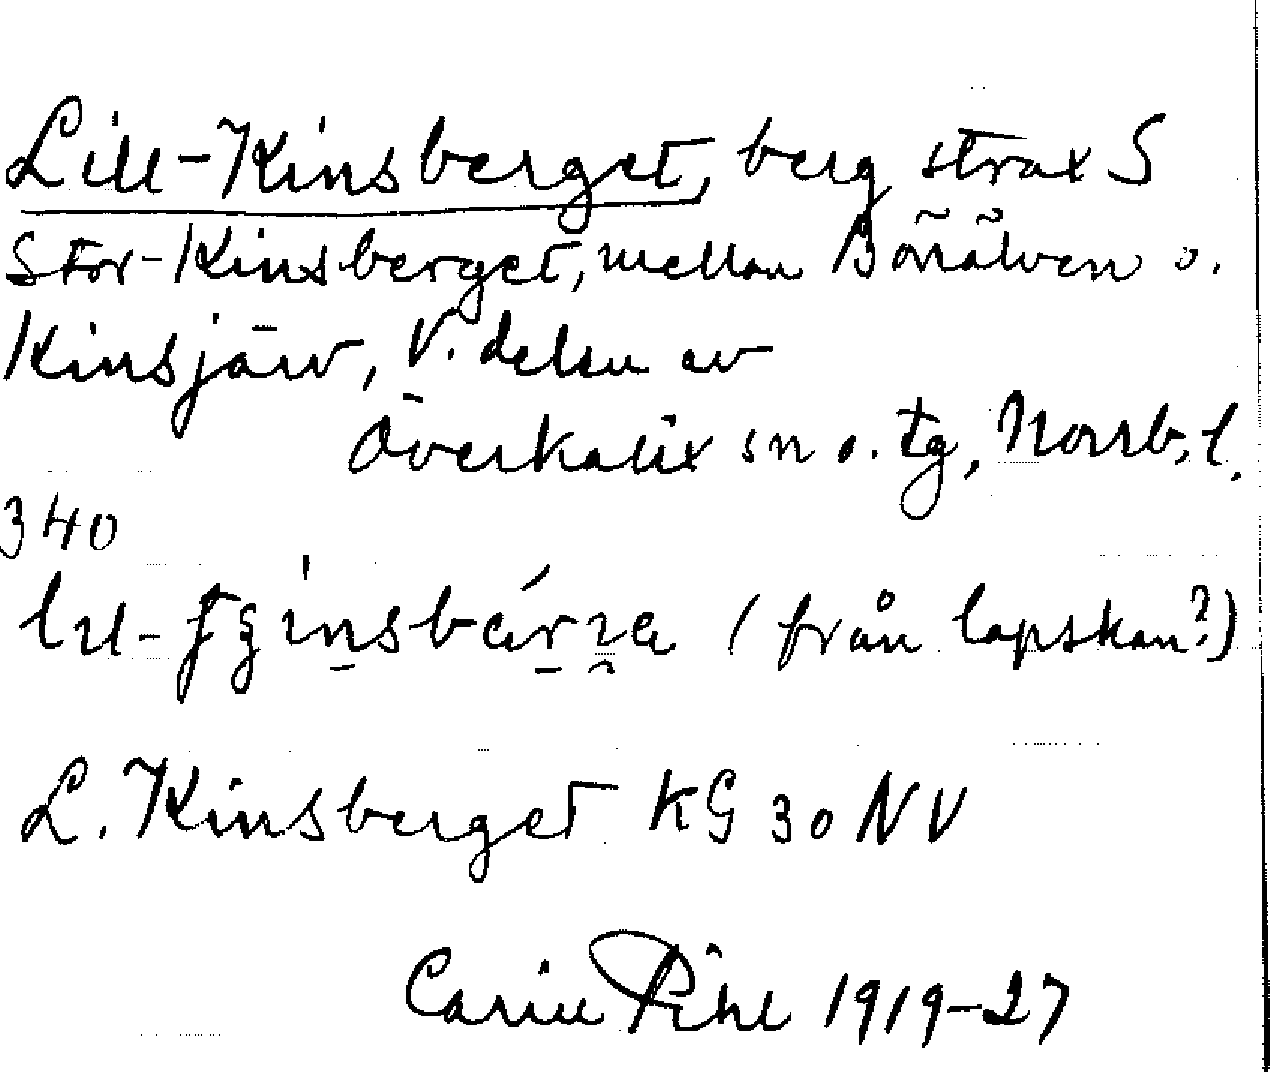 Lill-Kinsberget, berg strax S
Stor-Kinsberget, mellan Bönälven o.
Kinsjärv, V. delen av
Överkalix sn o. tg, Norrb. l.
340
(från lapskan?)
L. Kinsberget KG 30 NV
Carin Pihl 1919-27